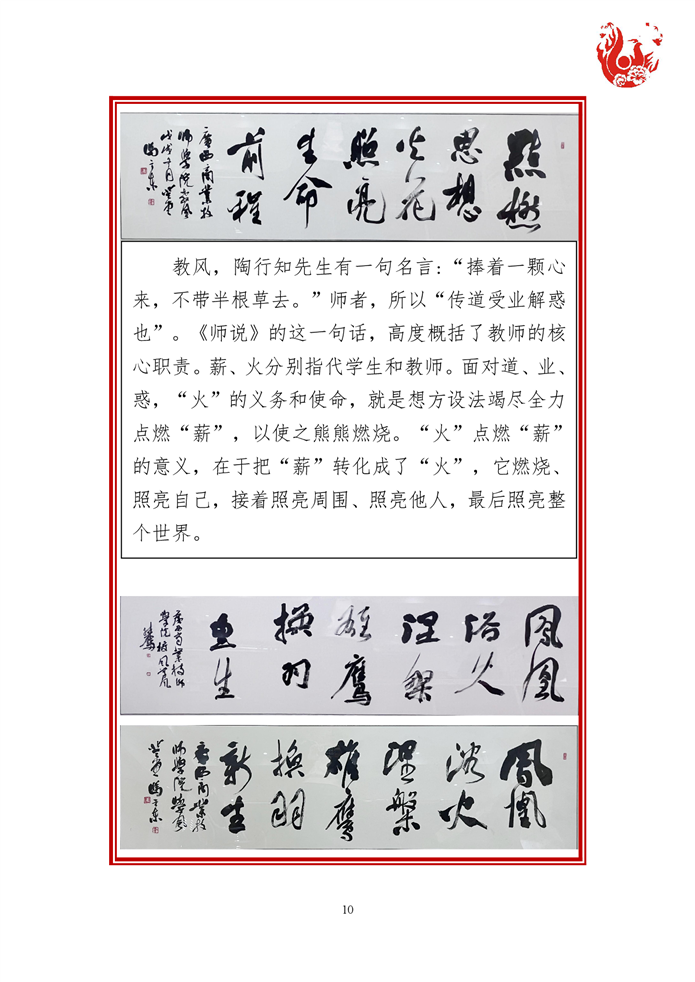 點燃
思想
火花
照亮
生命
前程
广西商業技
師學院教風
教风，陶行知先生有一句名言：“捧着一颗心
来，不带半根草去。”师者，所以“传道受业解惑
也”。《师说》的这一句话，高度概括了教师的核
心职责。薪、火分别指代学生和教师。面对道、业、
惑，“火”的义务和使命，就是想方设法竭尽全力
点燃“薪”，以使之熊熊燃烧。“火”点燃“薪”
的意义，在于把“薪”转化成了“火”，它燃烧、
照亮自己，接着照亮周围、照亮他人，最后照亮整
个世界。
凤凰
浴火
涅槃
雄鹰
换羽
重生
鳳凰
浴火
涅槃
雄鹰
换羽
新生
廣西商業技
師學院學風
10